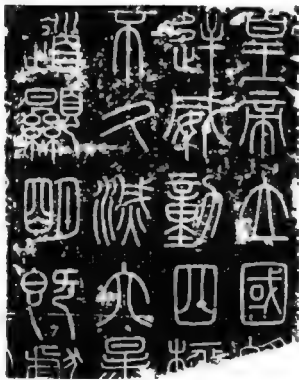 皇帝立國
逆威動四極
不久滅六暴
道顯明既獻